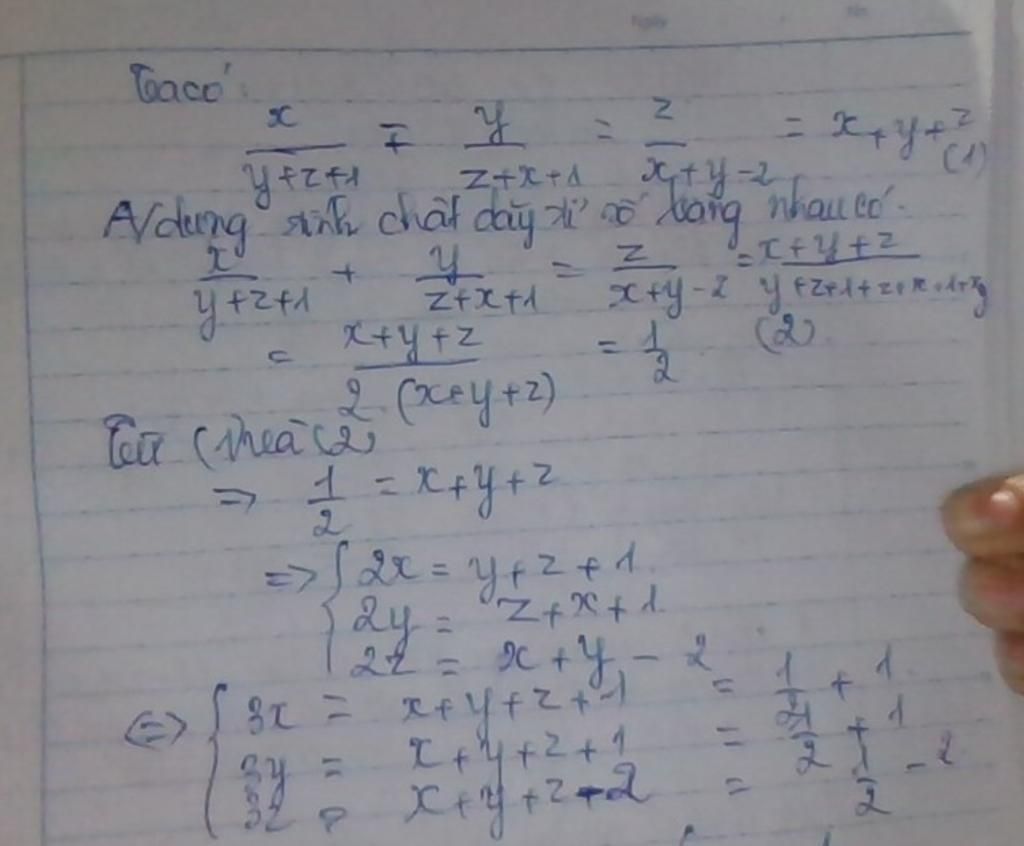 Ta có:
x/(y+z+1) = y/(z+x+1) = z/(x+y-2) = x+y+z (1)
A/dụng tính chất dãy tỉ số bằng nhau có.
x/(y+z+1) + y/(z+x+1) = z/(x+y-2) = (x+y+z)/(y+z+1+z+x+1+x+y
= (x+y+z)/(2.(x+y+z)) = 1/2 (2)
Từ (1) và (2)
=> 1/2 = x+y+z
=> { 2x = y+z+1
2y = z+x+1
2z = x+y-2
<=> { 3x = x+y+z+1 = 1/2 + 1
3y = x+y+z+1 = 1/2 + 1
3z = x+y+z-2 = 1/2 - 2